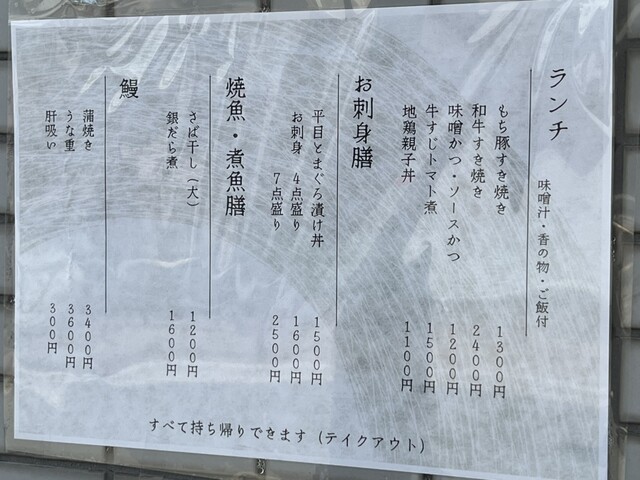 ランチ
味噌汁・香の物・ご飯付
もち豚すき焼き 1300円
和牛すき焼き 2400円
味噌かつ・ソースかつ 1200円
牛すじトマト煮 1500円
地鶏親子丼 1100円
お刺身膳
平目とまぐろ漬け丼 1500円
お刺身 4点盛り 1600円
7点盛り 2500円
焼魚・煮魚膳
さば干し(大) 1200円
銀だら煮 1600円
鰻
蒲焼き 3400円
うな重 3600円
肝吸い 300円
すべて持ち帰りできます(テイクアウト)